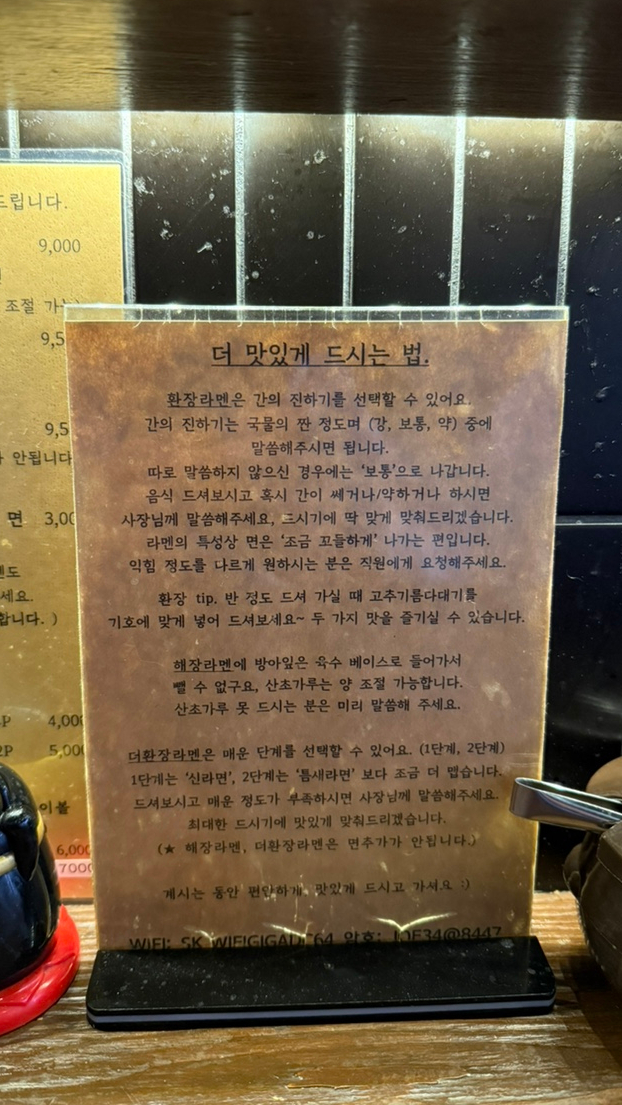 드립니다.
9,000
조절
면 3,00
세요.
4,000
5,000
이볼
6,000
7000
더 맛있게 드시는 법.
환장라멘은 간의 진하기를 선택할 수 있어요.
간의 진하기는 국물의 짠 정도며 (강, 보통, 약) 중에
말씀해주시면 됩니다.
따로 말씀하지 않으신 경우에는 '보통'으로 나갑니다.
음식 드셔보시고 혹시 간이 쎄거나/약하거나 하시면
사장님께 말씀해주세요, 드시기에 딱 맞게 맞춰드리겠습니다.
라멘의 특성상 면은 '조금 꼬들하게' 나가는 편입니다.
익힘 정도를 다르게 원하시는 분은 직원에게 요청해주세요.
환장 tip. 반 정도 드셔 가실 때 고추기름다대기를
기호에 맞게 넣어 드셔보세요~ 두 가지 맛을 즐기실 수 있습니다.
해장라멘에 방아잎은 육수 베이스로 들어가서
뺄 수 없구요, 산초가루는 양 조절 가능합니다.
산초가루 못 드시는 분은 미리 말씀해 주세요.
더환장라멘은 매운 단계를 선택할 수 있어요. (1단계, 2단계)
1단계는 '신라면', 2단계는 '틈새라면' 보다 조금 더 맵습니다.
드셔보시고 매운 정도가 부족하시면 사장님께 말씀해주세요.
최대한 드시기에 맛있게 맞춰드리겠습니다.
(★ 해장라멘, 더환장라멘은 면추가가 안됩니다.)
계시는 동안 편안하게, 맛있게 드시고 가셔요 :)
WIFI: SK 암호: